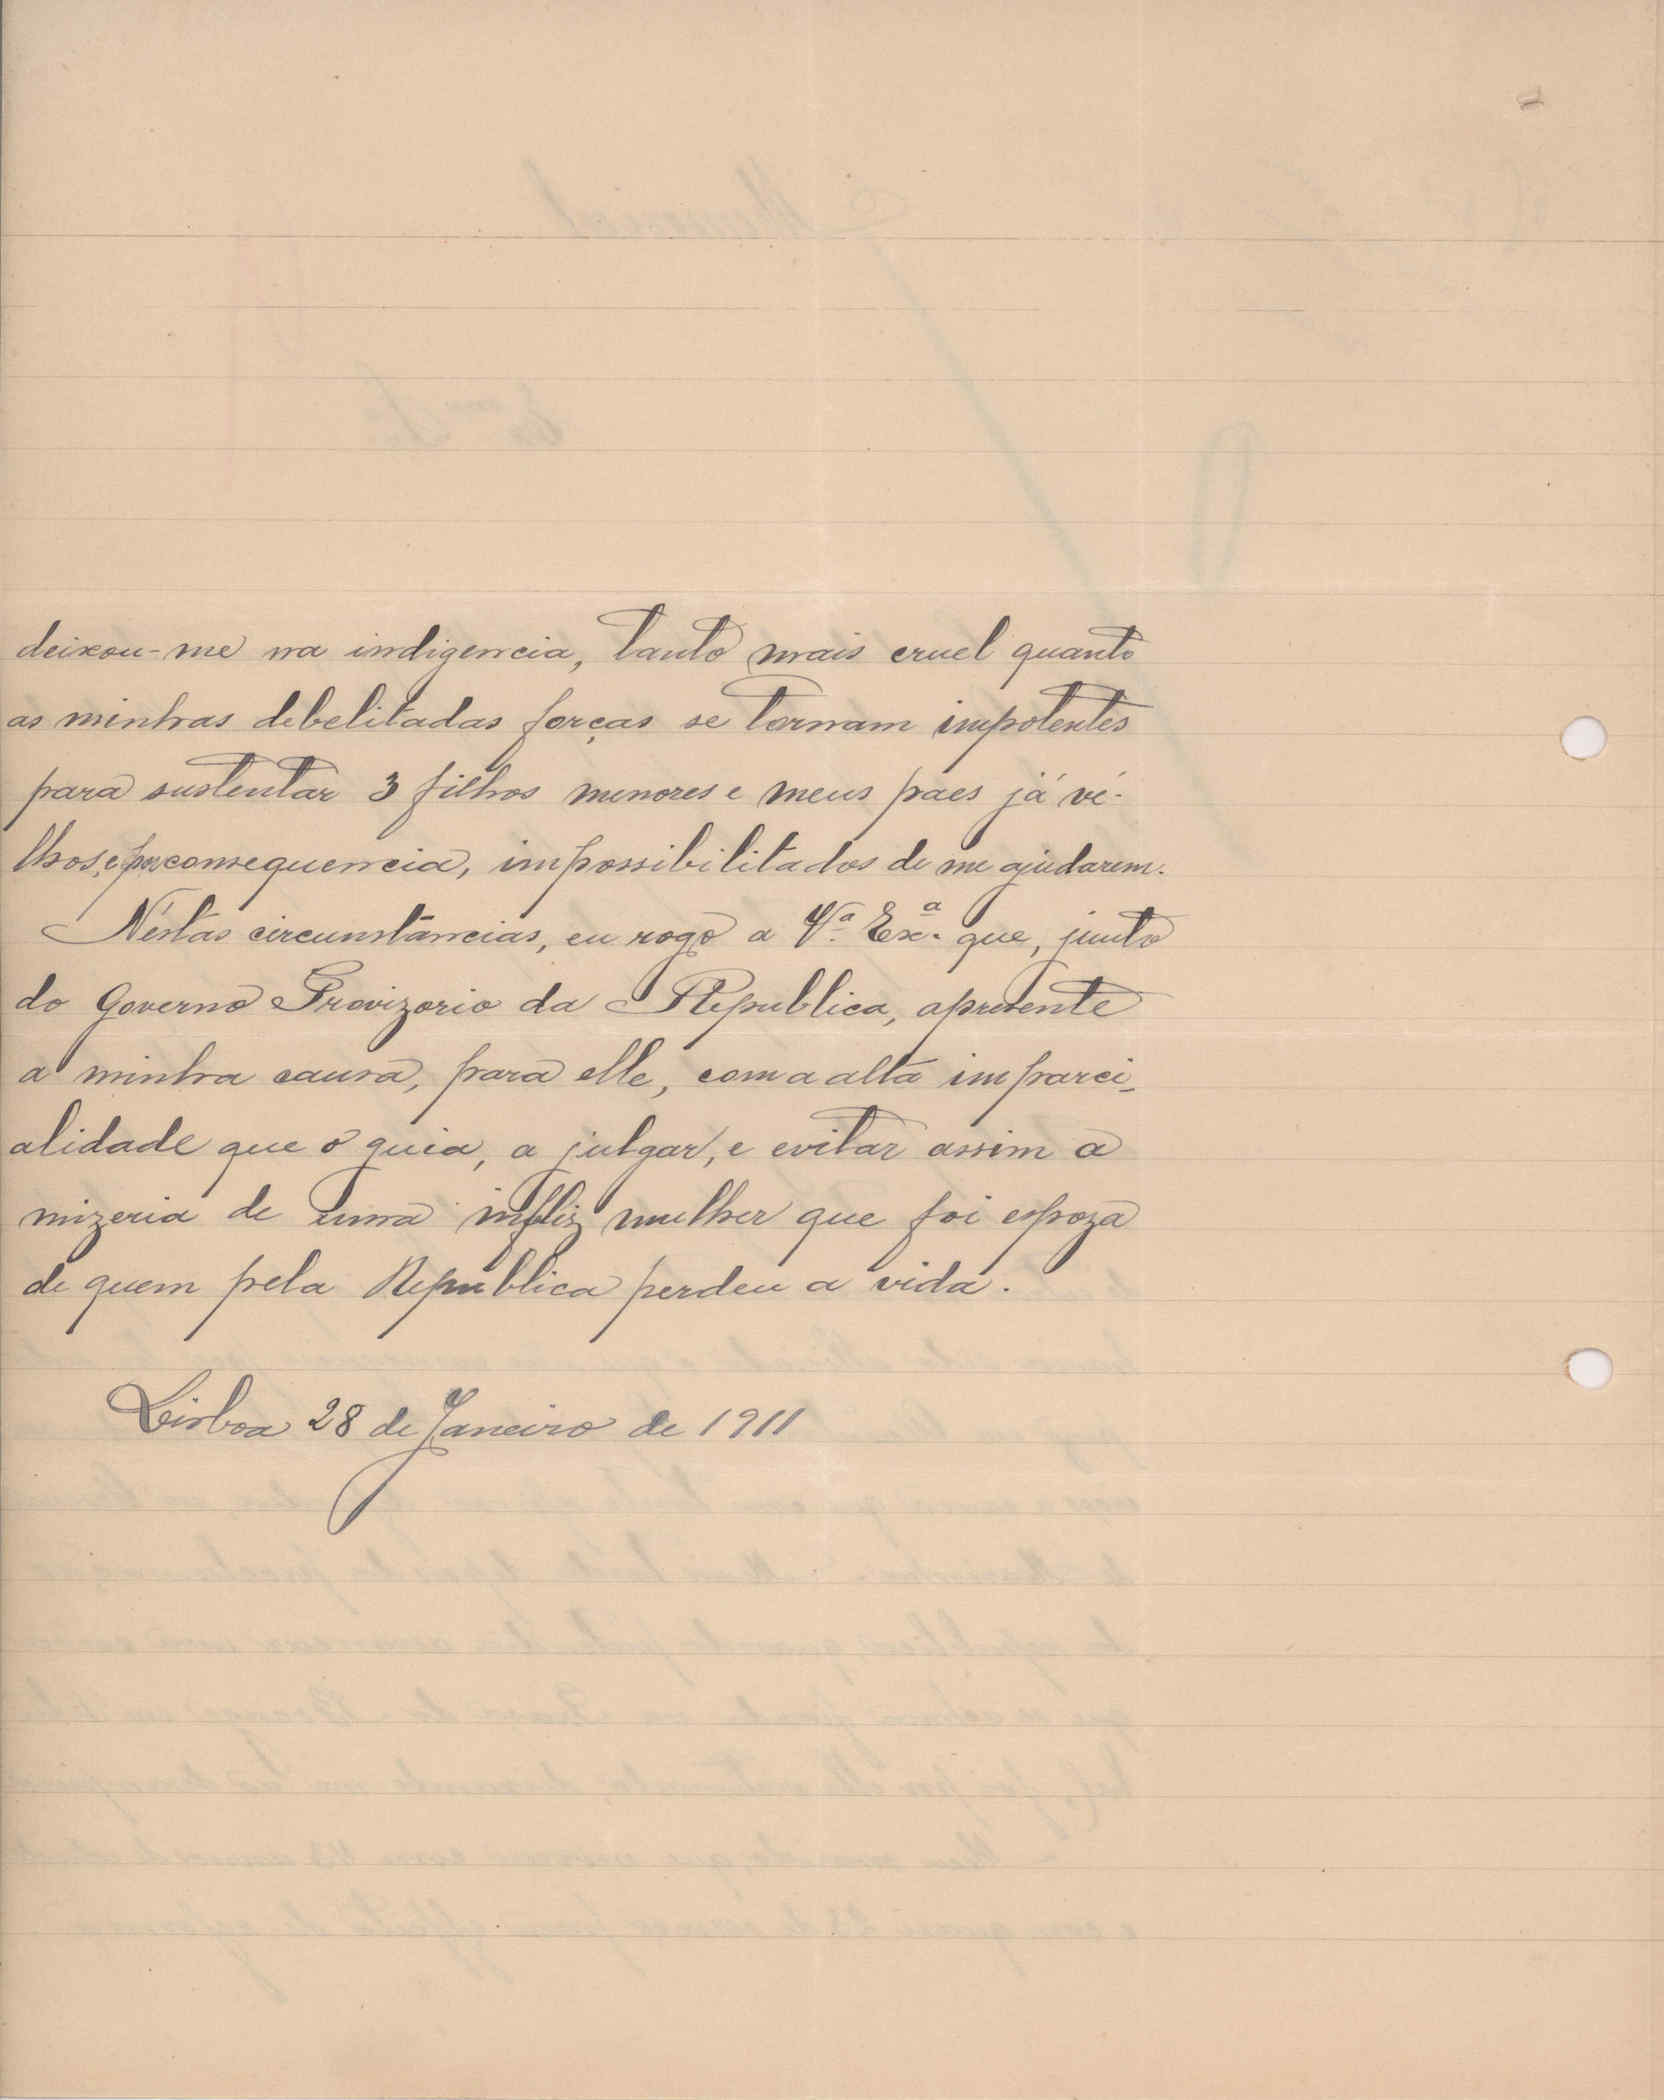 deixou-me na indigencia, tanto mais cruel quanto
as minhas debelitadas forças se tornam impotentes
para sustentar 3 filhos menores e meus paes já vé-
lhos, e por consequencia, impossibilitados de me ajudarem.
Néstas circumstâncias, eu rogo a V.ª Ex.ª que, junto
do Governo Provizorio da Republica, apresente
a minha causa, para elle, com a alta imparci-
alidade que o guia, a julgar, e evitar assim a
mizeria de uma infeliz mulher que foi espoza
de quem pela Republica perdeu a vida.
Lisboa 28 de Janeiro de 1911